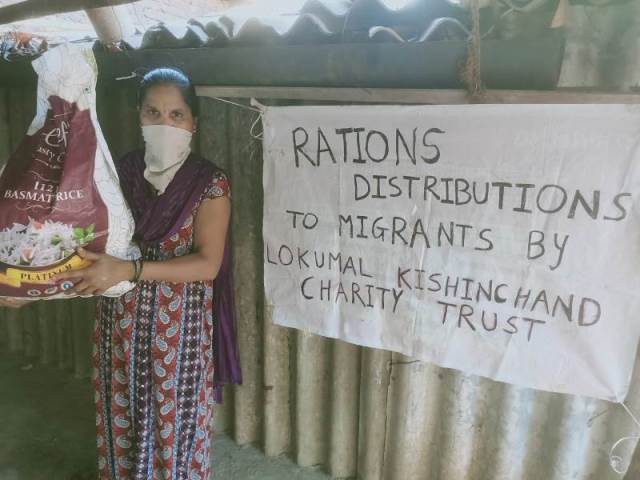 1121
BASMATI RICE
PLATINUM
RATIONS
DISTRIBUTIONS
TO MIGRANTS BY
LOKUMAL KISHINCHAND
CHARITY TRUST